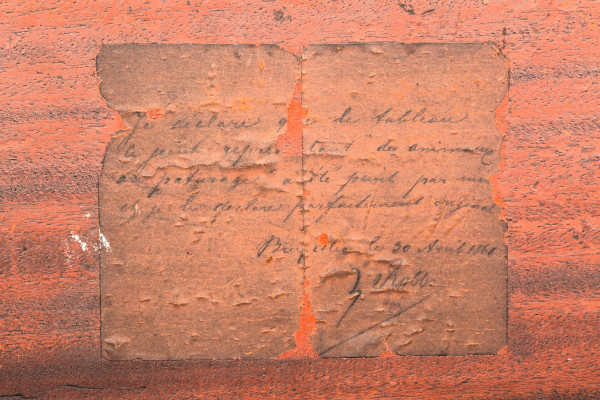 Je déclare que ce tableau
ci joint représentant des animaux
au paturage a été peint par moi
et je le déclare parfaitement original
Bruxelles le 30 Août 186
Robbe